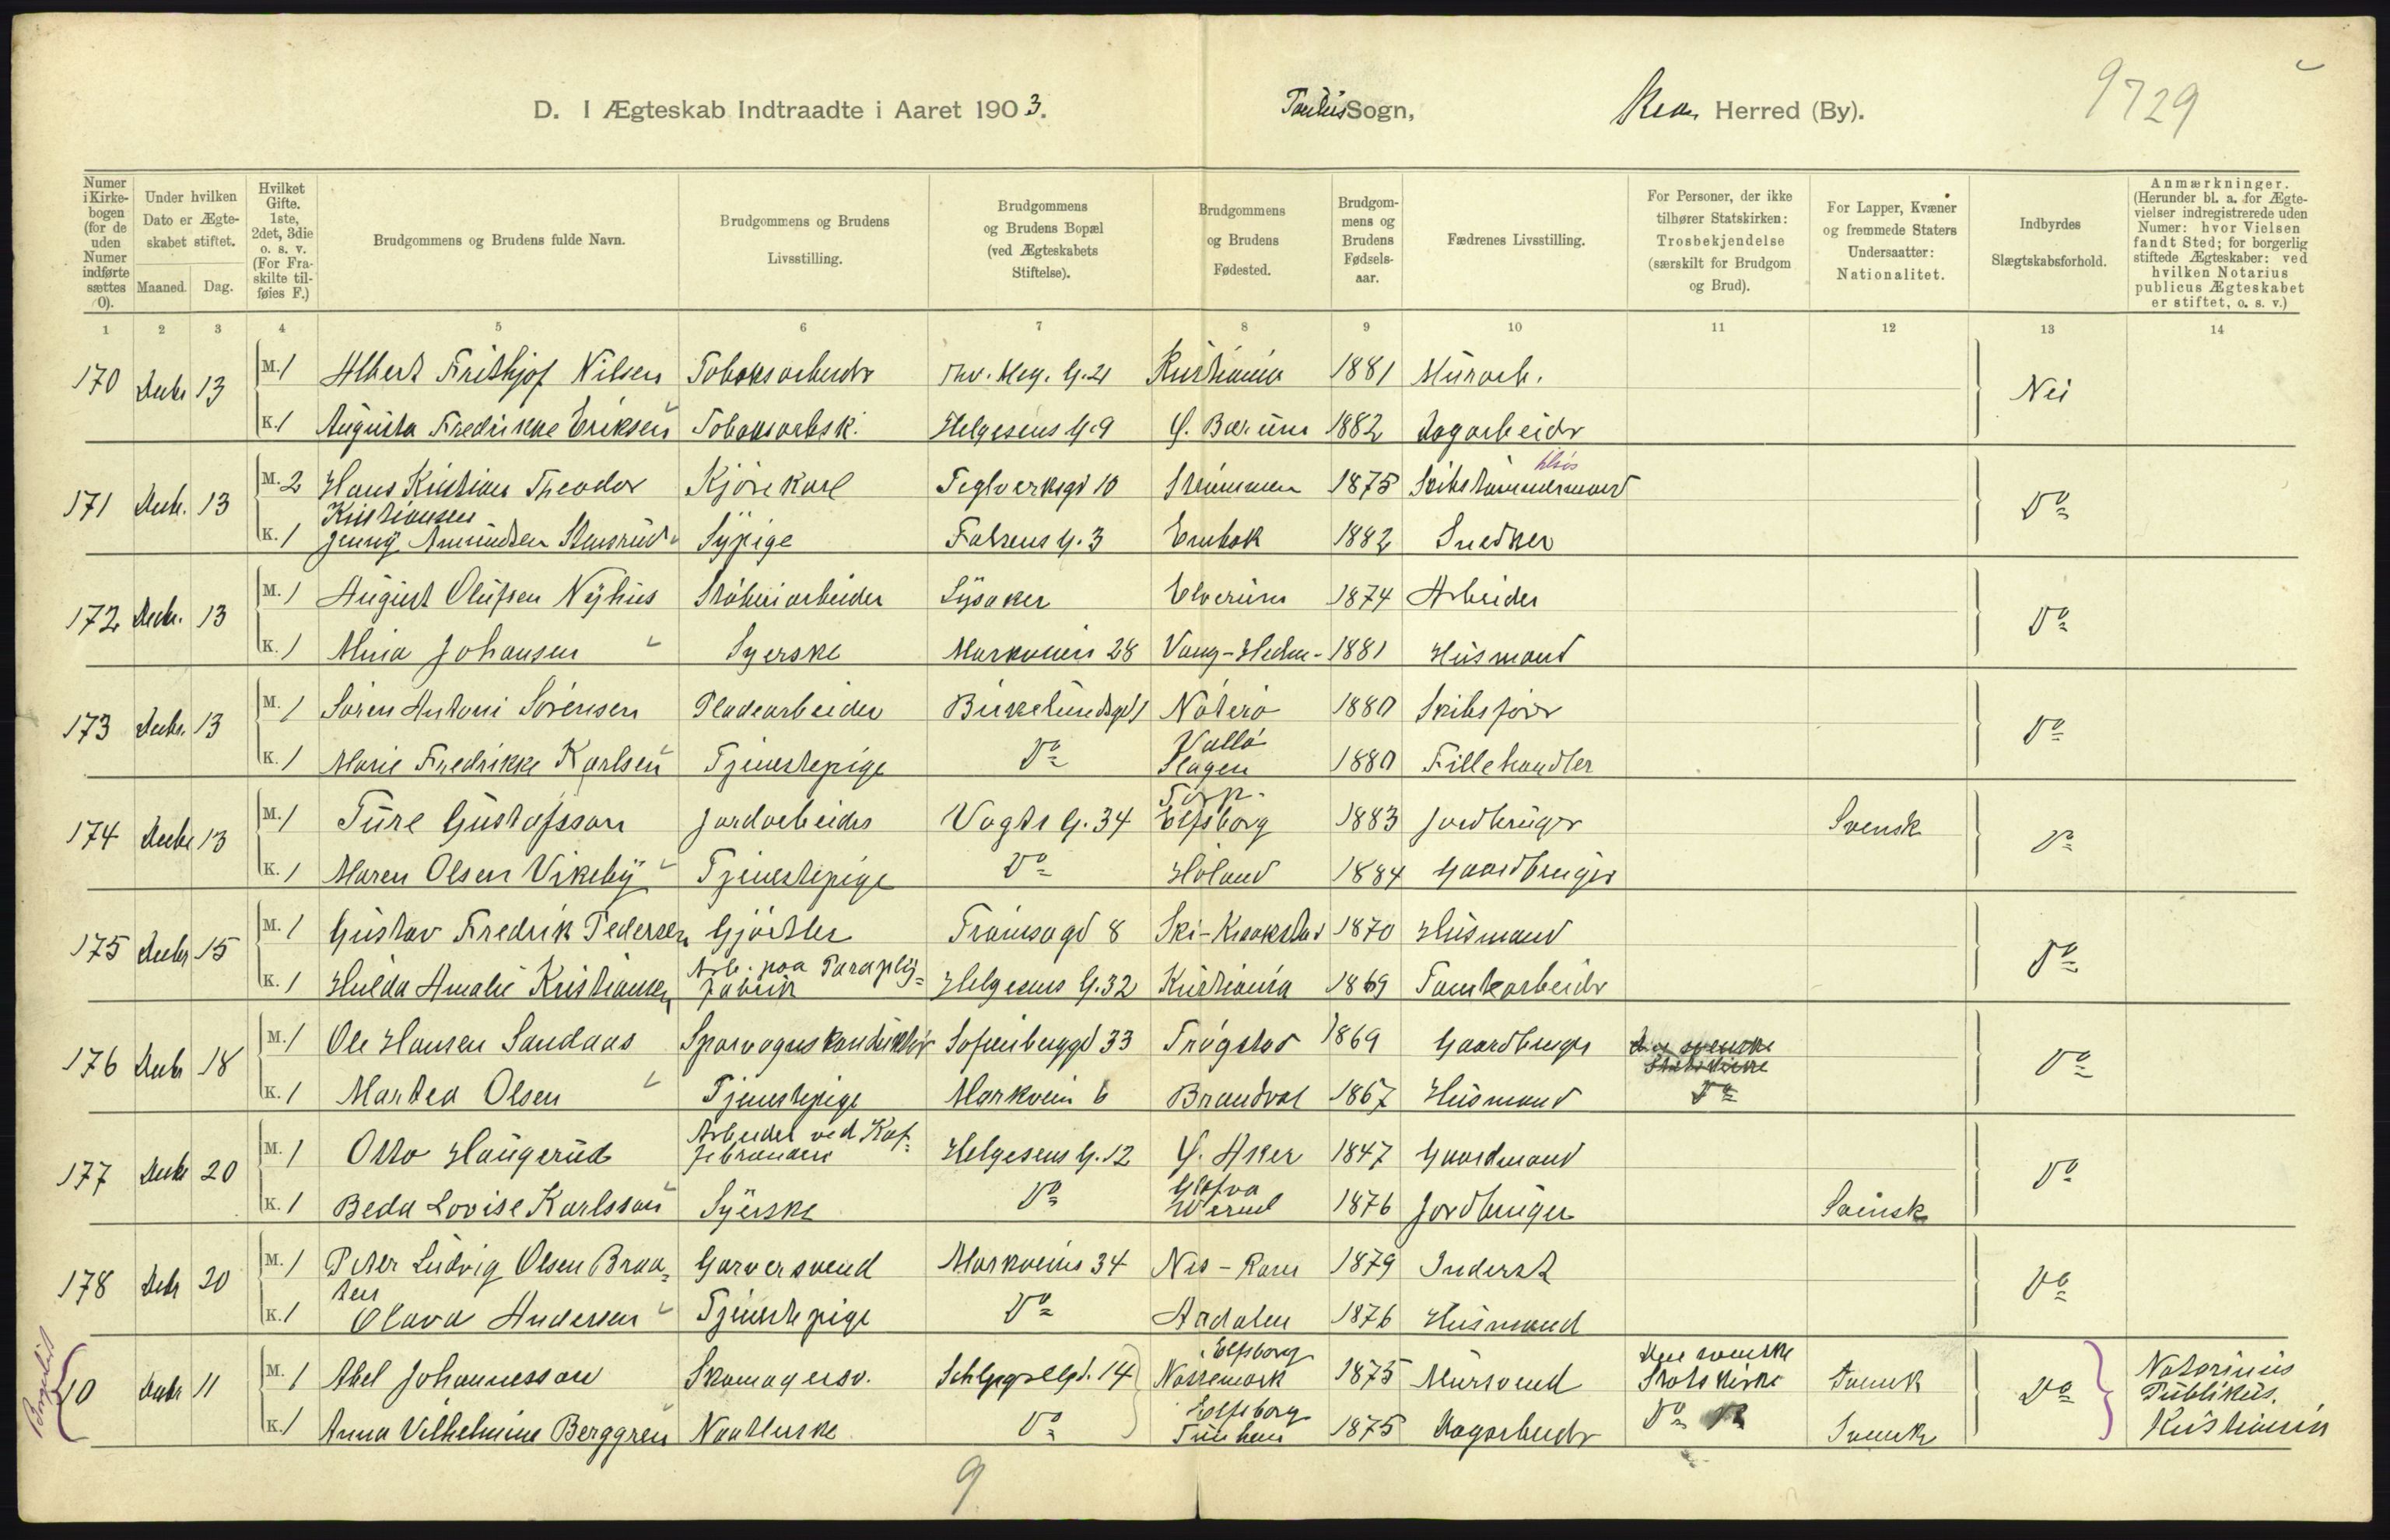 9729
D. I Ægteskab Indtraadte i Aaret 1903. Paulus Sogn, Kra. Herred (By).
Numer i Kirkebogen (for de uden Numer indførte sættes 0).
Under hvilken Dato er Ægteskabet stiftet.
Maaned. Dag.
Hvilket Gifte. 1ste, 2det, 3die o. s. v. (For Fraskilte tilføies F.)
Brudgommens og Brudens fulde Navn.
Brudgommens og Brudens Livsstilling.
Brudgommens og Brudens Bopæl (ved Ægteskabets Stiftelse).
Brudgommens og Brudens Fødested.
Brudgommens og Brudens Fødselsaar.
Fædrenes Livsstilling.
For Personer, der ikke tilhører Statskirken: Trosbekjendelse (særskilt for Brudgom og Brud).
For Lapper, Kvæner og fremmede Staters Undersaatter: Nationalitet.
Indbyrdes Slægtskabsforhold.
Anmærkninger. (Herunder bl. a. for Ægtevielser indregistrerede uden Numer: hvor Vielsen fandt Sted; for borgerlig stiftede Ægteskaber: ved hvilken Notarius publicus Ægteskabet er stiftet, o. s. v.)
1 2 3 4 5 6 7 8 9 10 11 12 13 14
170 Decbr 13 M. 1 Albert Frithjof Nilsen Tobaksarbeidr Thv. Mey. G. 21 Kristiania 1881 Murarb. Nei
K. 1 Augusta Fredrikke Eriksen Tobaksarbsk. Helgesens G. 9 Ø. Bærum 1882 Dagarbeidr
171 Decb. 13 M. 2 Hans Kristian Theodor Kristiansen Kjørekarl Teglverksgd 10 Strømmen 1875 Skibstømmermand Do
K. 1 Jenny Amundsen Stensrud Sypige Falsens G. 3 Enebak 1882 Snedker
172 Decbr. 13 M. 1 August Olufsen Nyhus Støberiarbeider Lysaker Elverum 1874 Arbeider Do
K. 1 Mina Johansen Syerske Markveien 28 Vang-Hedm- 1881 Husmand
173 Decbr. 13 M. 1 Søren Antoni Sørensen Pladearbeider Birkelundsgd 1 Nøterø 1880 Skibsfører Do
K. 1 Marie Fredrikke Karlsen Tjenestepige Do Vallø Slagen 1880 Fillehandler
174 Decbr 13 M. 1 Ture Gustafsson Jordarbeider Vogts G. 34 Torp. Elfsborg 1883 Jordbruger Svensk Do
K. 1 Maren Olsen Vikeby Tjenestepige Do Høland 1884 Gaardbruger
175 Decbr 15 M. 1 Gustav Fredrik Pedersen Gjørtler Tromsøgd 8 Ski-Kraakstad 1870 Husmand Do
K. 1 Hulda Amalie Kristiansen Arb. paa Paraplyfabrik Helgesens G. 32 Kristiania 1869 Tomtearbeidr
176 Decbr 18 M. 1 Ole Hansen Sandaas Sporvognskonduktør Sofienberggd 33 Trøgstad 1869 Gaardbruger Den svenske Statskirke Do
K. 1 Martea Olsen Tjenestepige Markveien 6 Brandval 1867 Husmand Do
177 Decbr 20 M. 1 Otto Haugerud Arbeider ved Kaffebrænderi Helgesens G. 12 Ø. Aker 1847 Gaardmand Do
K. 1 Beda Lovise Karlsson Syerske Do Glafva Werml 1876 Jordbruger Svensk
178 Decbr 20 M. 1 Peter Ludvig Olsen Braaten Garversvend Markveien 34 Nes-Rom 1879 Inderst Do
K. 1 Olava Andersen Tjenestepige Do Ardalen 1876 Husmand
Borgerlig
0 Decbr 11 M. 1 Abel Johannesson Skomagersv. Schleppegrellsgd. 14 Elfsborg Nossemark 1875 Mursvend Den svenske Statskirke Svensk Do Notarius Publikus. Kristiania
K. 1 Anna Vilhelmine Berggren Naatlerske Do Elfsborg 1875 Dagarbeidr Do Svensk
9